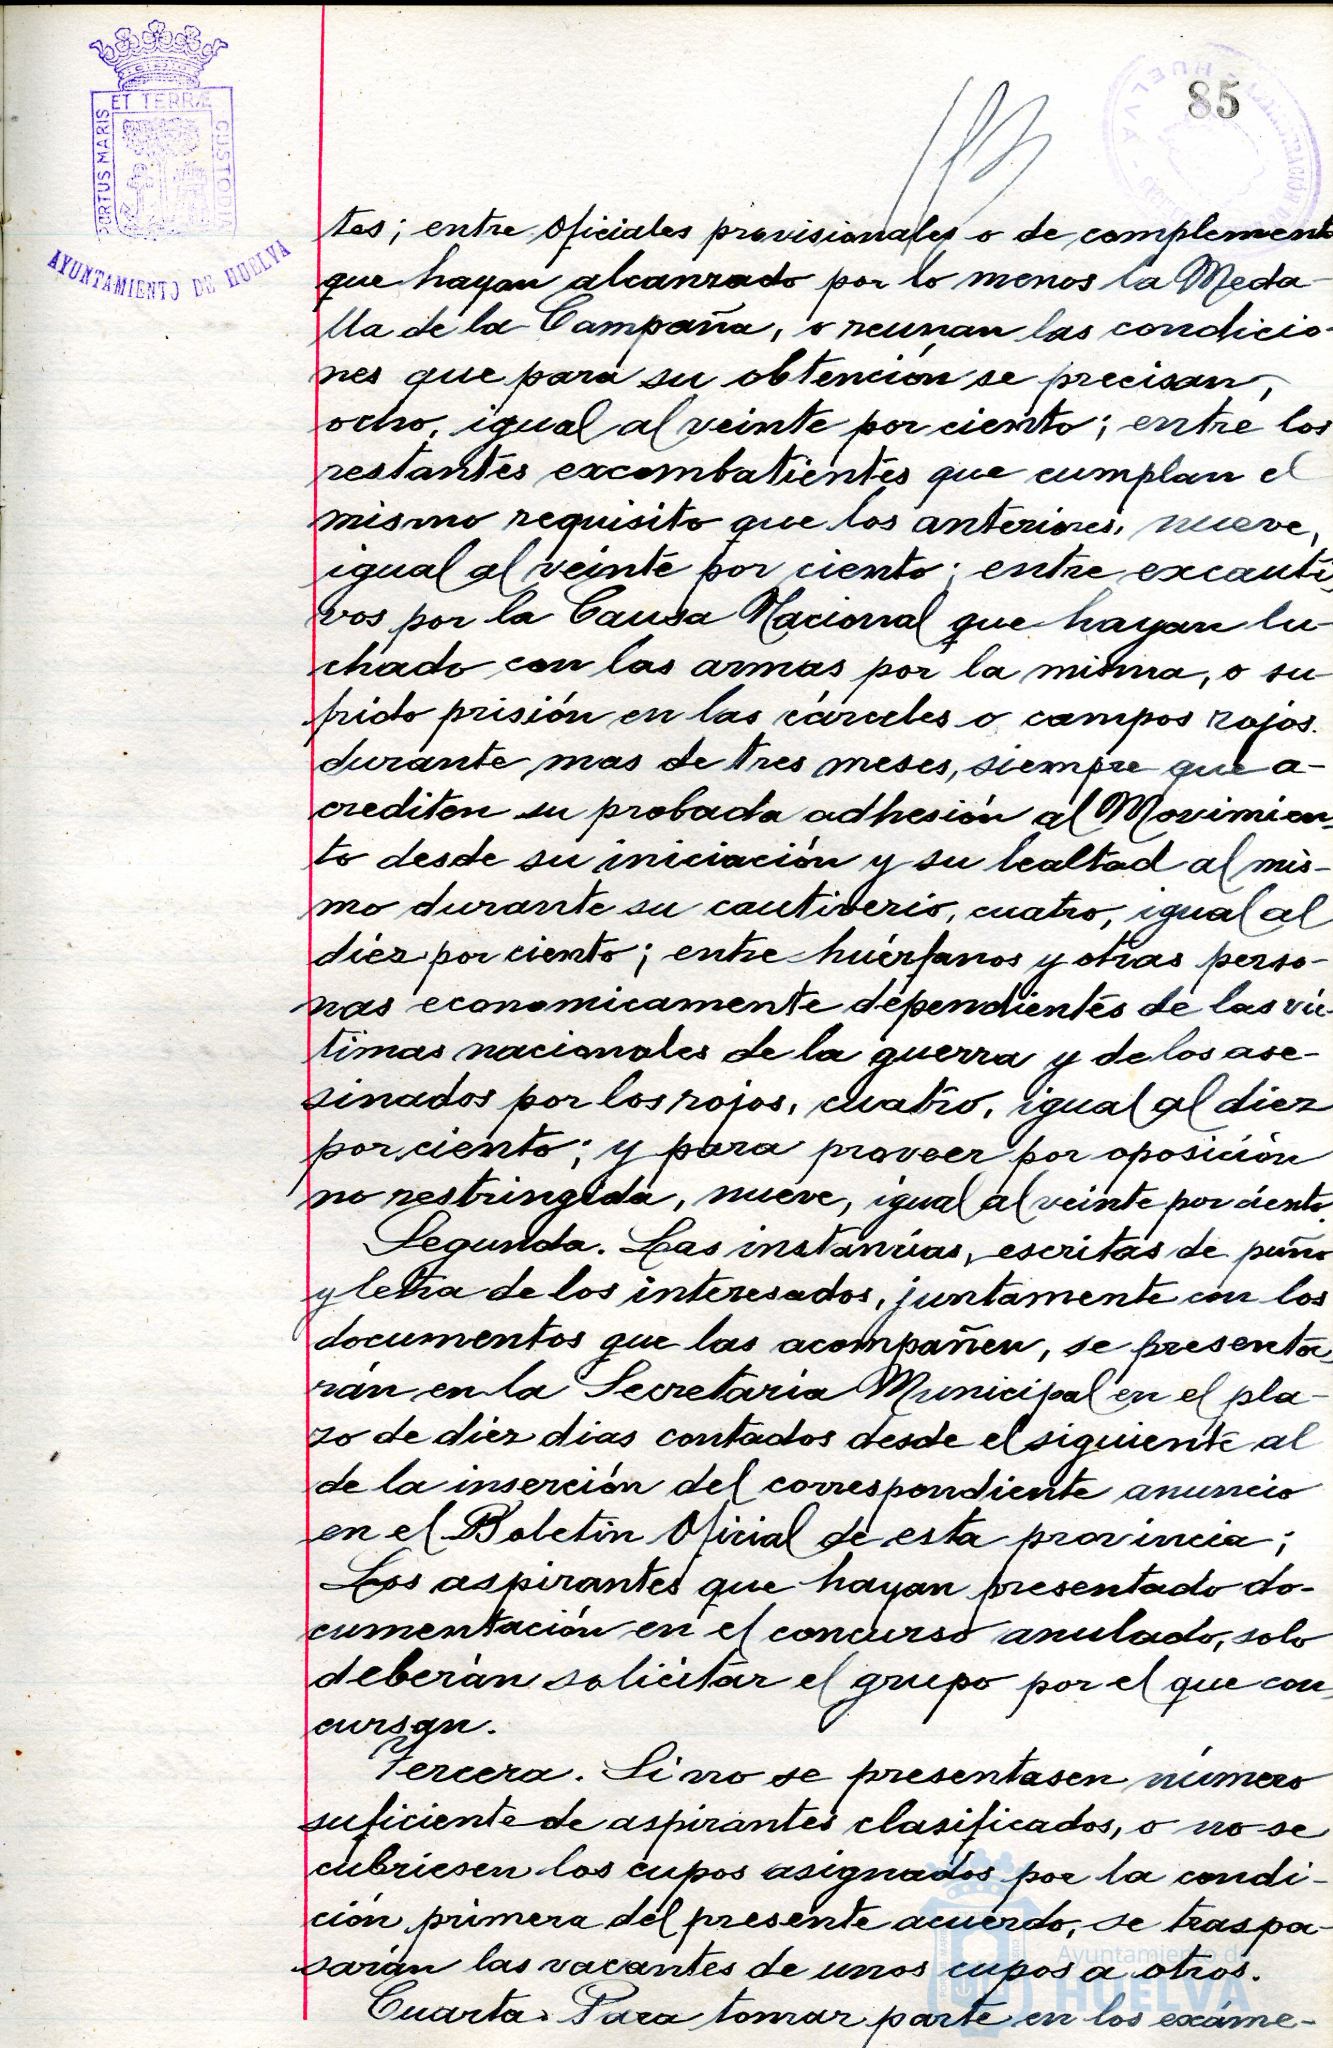 PORTUS MARIS ET TERRÆ CUSTODIA
AYUNTAMIENTO DE HUELVA
HUELVA
85
tes; entre Oficiales provisionales o de complemento
que hayan alcanzado por lo menos la Meda-
lla de la Campaña, o reunan las condicio-
nes que para su obtención se precisan,
ocho, igual al veinte por ciento; entre los
restantes excombatientes que cumplan el
mismo requisito que los anteriores, nueve,
igual al veinte por ciento; entre excauti-
vos por la Causa Nacional que hayan lu-
chado con las armas por la misma, o su-
frido prisión en las cárceles o campos rojos.
durante mas de tres meses, siempre que a-
crediten su probada adhesión al Movimien-
to desde su iniciación y su lealtad al mis-
mo durante su cautiverio, cuatro, igual al
diez por ciento; entre huérfanos y otras perso-
nas economicamente dependientes de las víc-
timas nacionales de la guerra y de los ase-
sinados por los rojos, cuatro, igual al diez
por ciento; y para proveer por oposición
no restringida, nueve, igual al veinte por ciento.
Segunda. Las instancias, escritas de puño
y letra de los interesados, juntamente con los
documentos que las acompañen, se presenta-
rán en la Secretaria Municipal en el pla-
zo de diez dias contados desde el siguiente al
de la inserción del correspondiente anuncio
en el Boletin Oficial de esta provincia;
Los aspirantes que hayan presentado do-
cumentación en el concurso anulado, solo
deberán solicitar el grupo por el que con-
cursan.
Tercera. Si no se presentasen número
suficiente de aspirantes clasificados, o no se
cubriesen los cupos asignados por la condi-
ción primera del presente acuerdo, se traspa-
sarán las vacantes de unos cupos a otros.
Cuarta. Para tomar parte en los exáme-
Ayuntamiento de
HUELVA